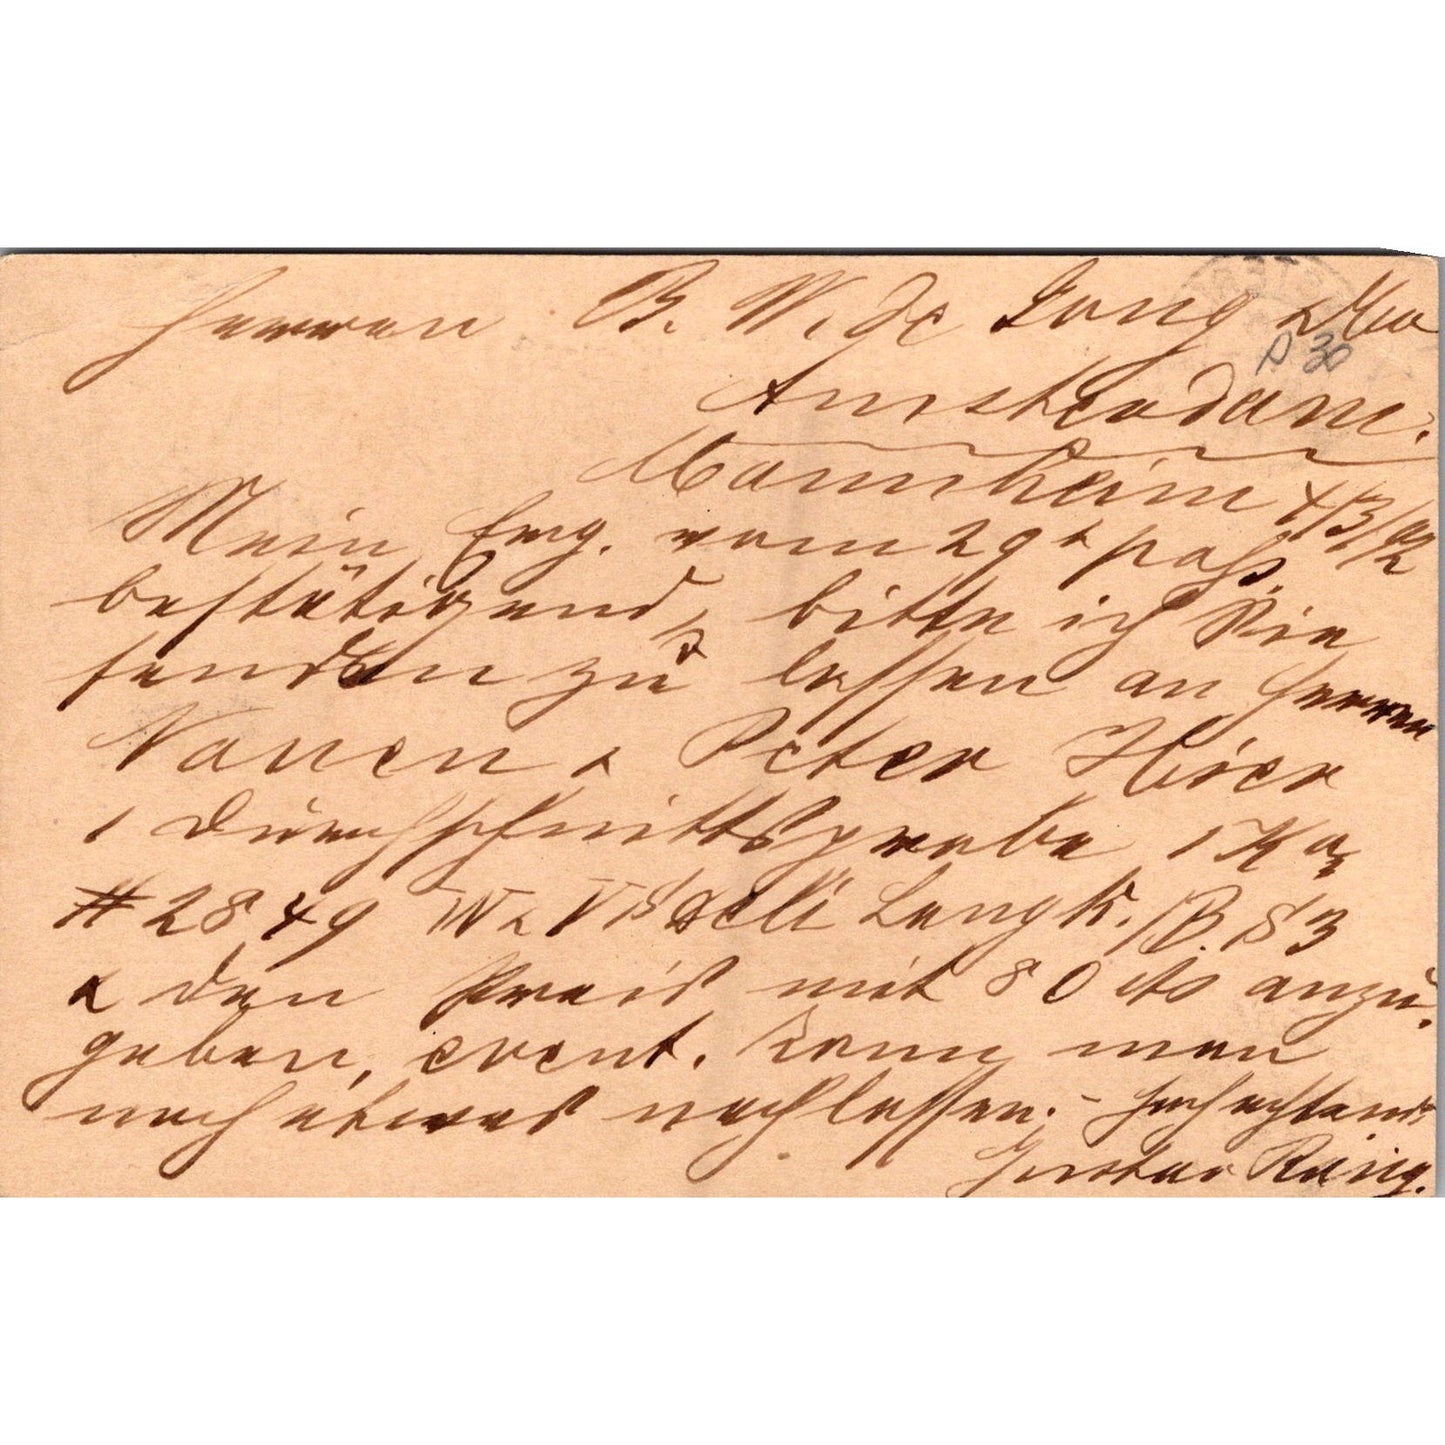 Herren B. W. de Jong & Co
Amsterdam.
Mannheim 1/3/92
Mein Erg. vom 29t pass.
bestätigend, bitte ich Sie
senden zu lassen an Herren
Nauen & Peter Hier
1 Durchschnittsprobe 1 K
# 2849 Deli Langk. /B. S 3
& den Preis mit 80 cts anzu-
geben, event. kann man
noch etwas nachlassen. - Hochachtend
Gustav
A 30